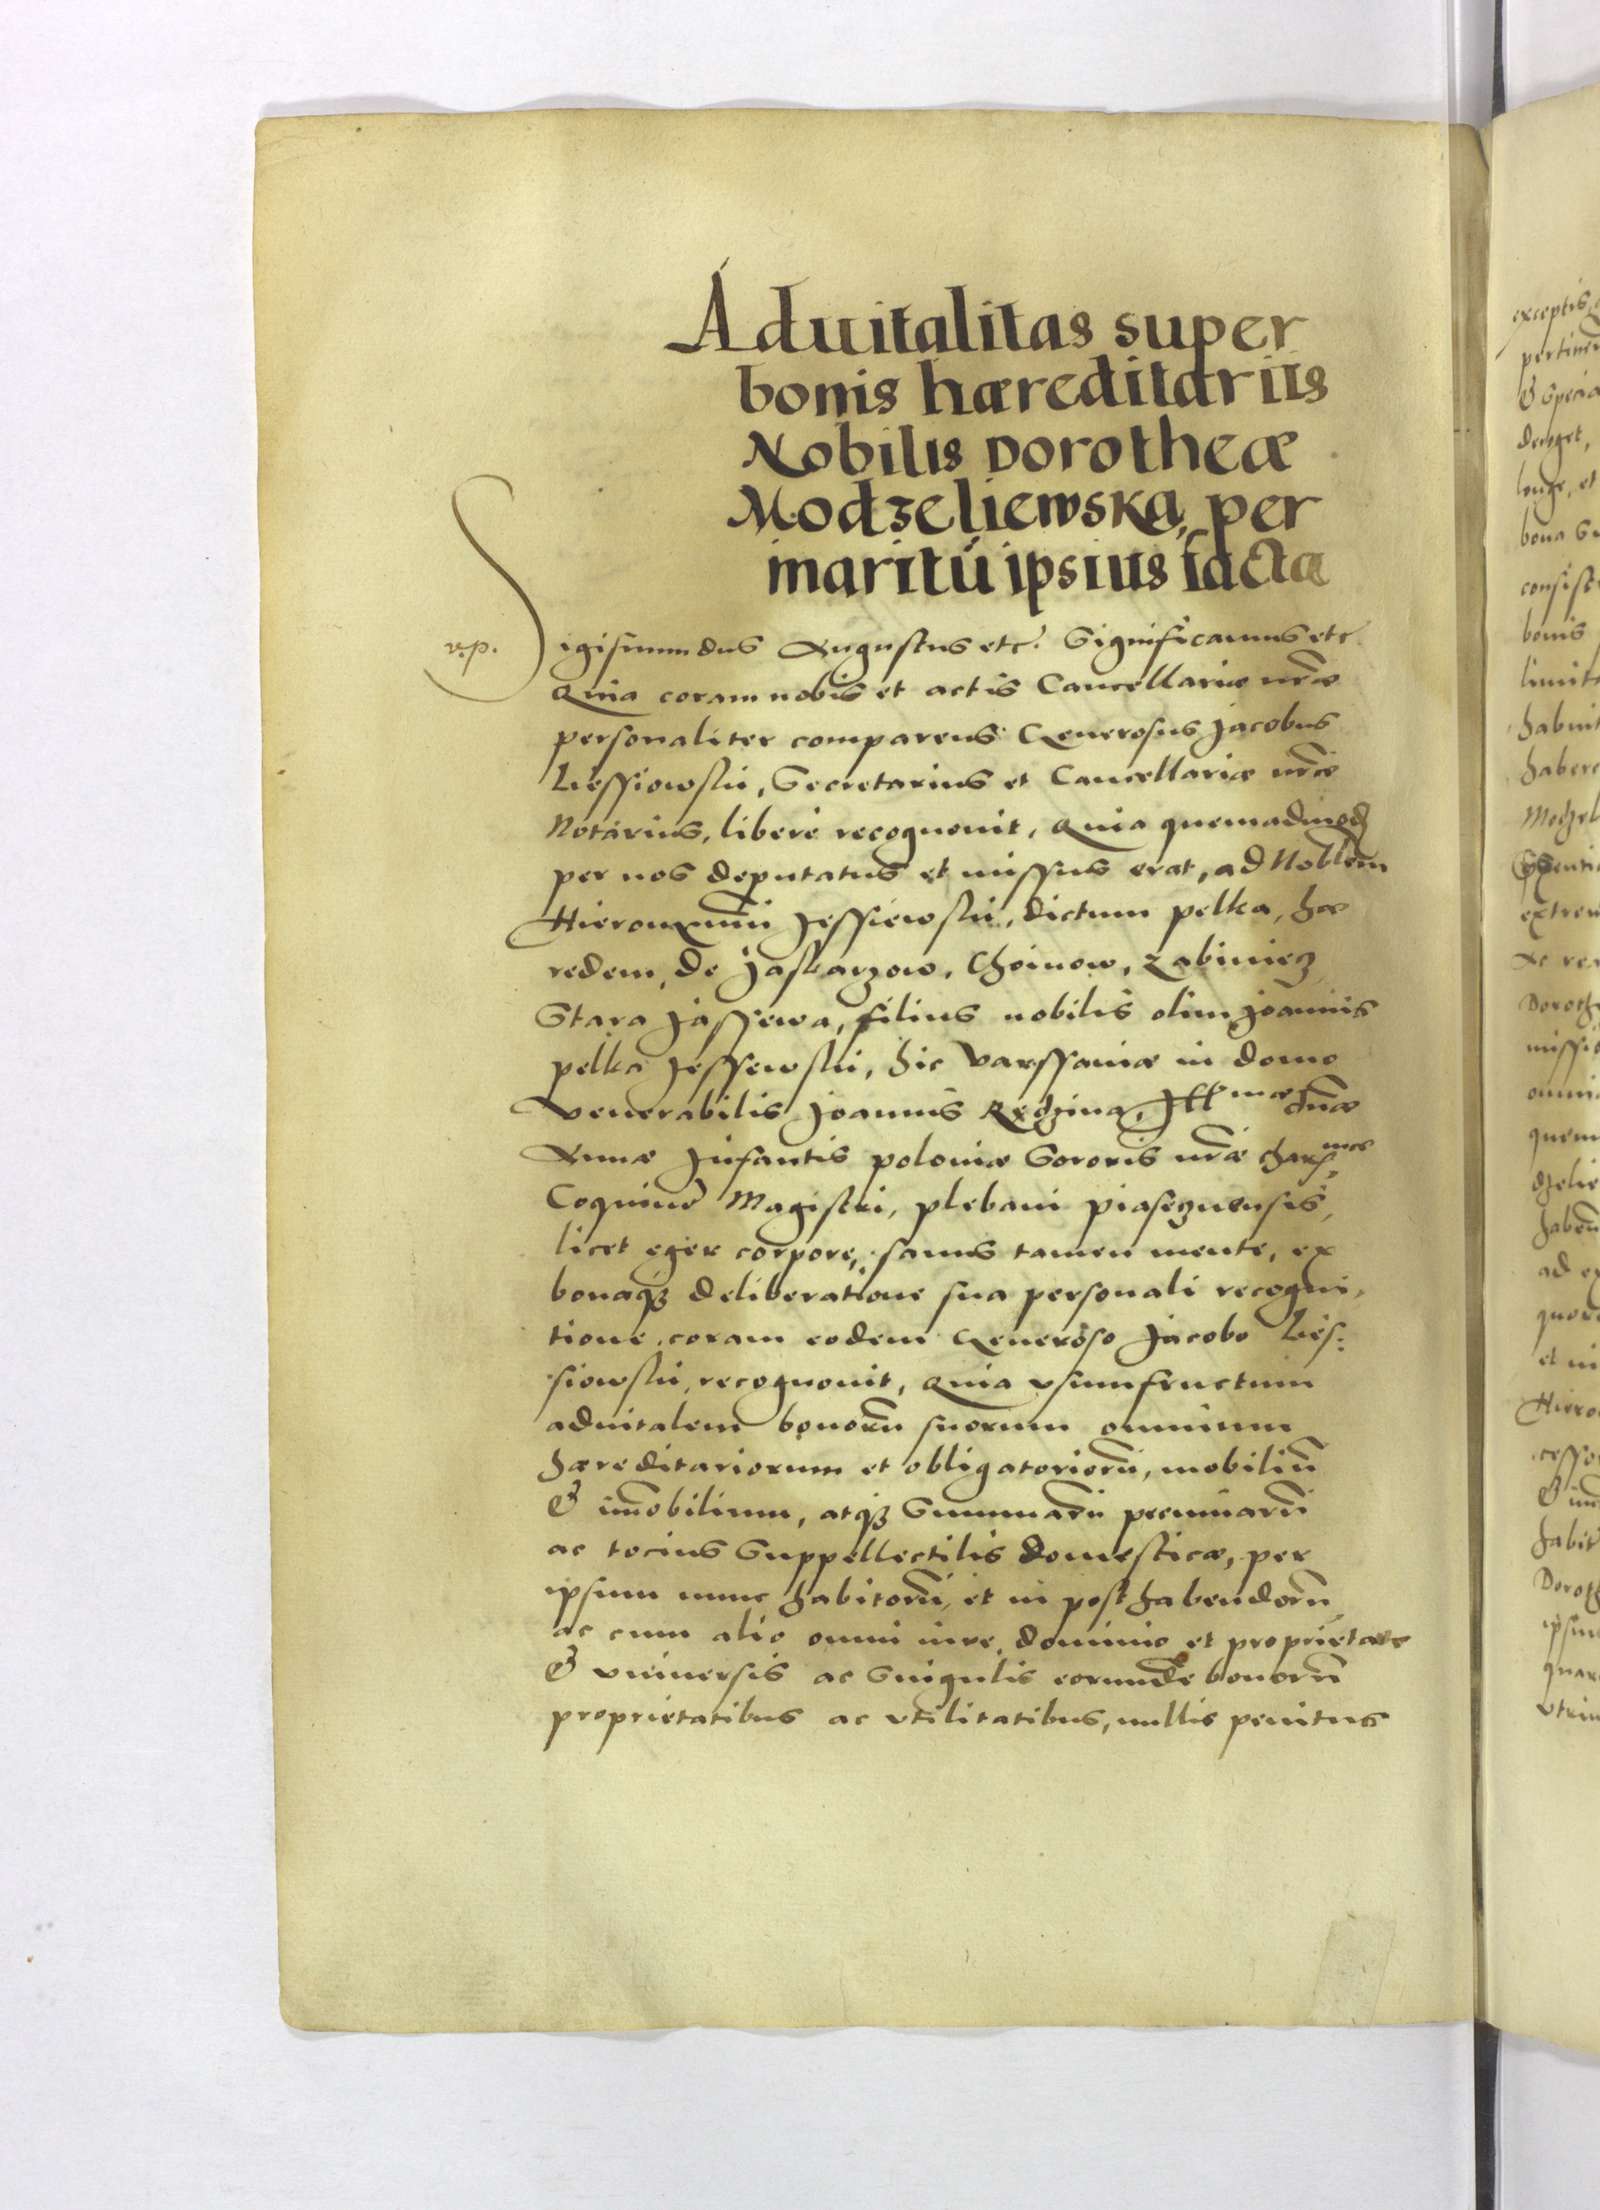 Aduitalitas super
bonis hæreditariis
Nobilis Dorotheæ
Modzeliewska, per
maritū ipsius facta
r. p.
Sigismundus Augustus etc. Significamus etc
Quia coram nobis et actis Cancellariæ nr̄æ
personaliter comparens Generosus Jacobus
Liessiowski, Secretarius et Cancellariæ nr̄æ
Notarius, libere recognouit, Quia quemadmod
per nos deputatus et missus erat, ad Nobl̄em
Hieronymū Jessiewski, dictum pelka, hæ
redem, de Jaskarzow, Choinow, Zabiniecz
Stara Jassewa, filius nobilis olim Joannis
pelka Jessewski, hic Varssauiæ in domo
Venerabilis Joannis, Illmæ dn̄æ
Annæ Infantis poloniæ Sororis nr̄æ charsmæ
Coquinæ Magistri, plebani piaseznensis,
licet eger corpore, sanus tamen mente, ex
bonaqꝫ deliberatione sua personali recogni,
tione, coram eodem Generoso Jacobo Lies:
siowski, recognouit, Quia vsumfructum
aduitalem bonorū suorum omnium
hæreditariorum et obligatoriorū, mobiliū
& im̄obilium, atqꝫ Summarū pecuniarū
ac tocius Suppellectilis domesticæ, per
ipsum nunc habitorū, et in post habendorū
ac cum alio omni iure, dominio et proprietate
& vniuersis ac Singulis eorunde bonorū
proprietatibus ac vtilitatibus, nullis penitus
exceptis
& Specia
longe, et
bona Su
bonis
habuit
habere
extrem
Doroth
omni
quem
ad ex
Hiero
cesso
habit
Doroth
ipsiu